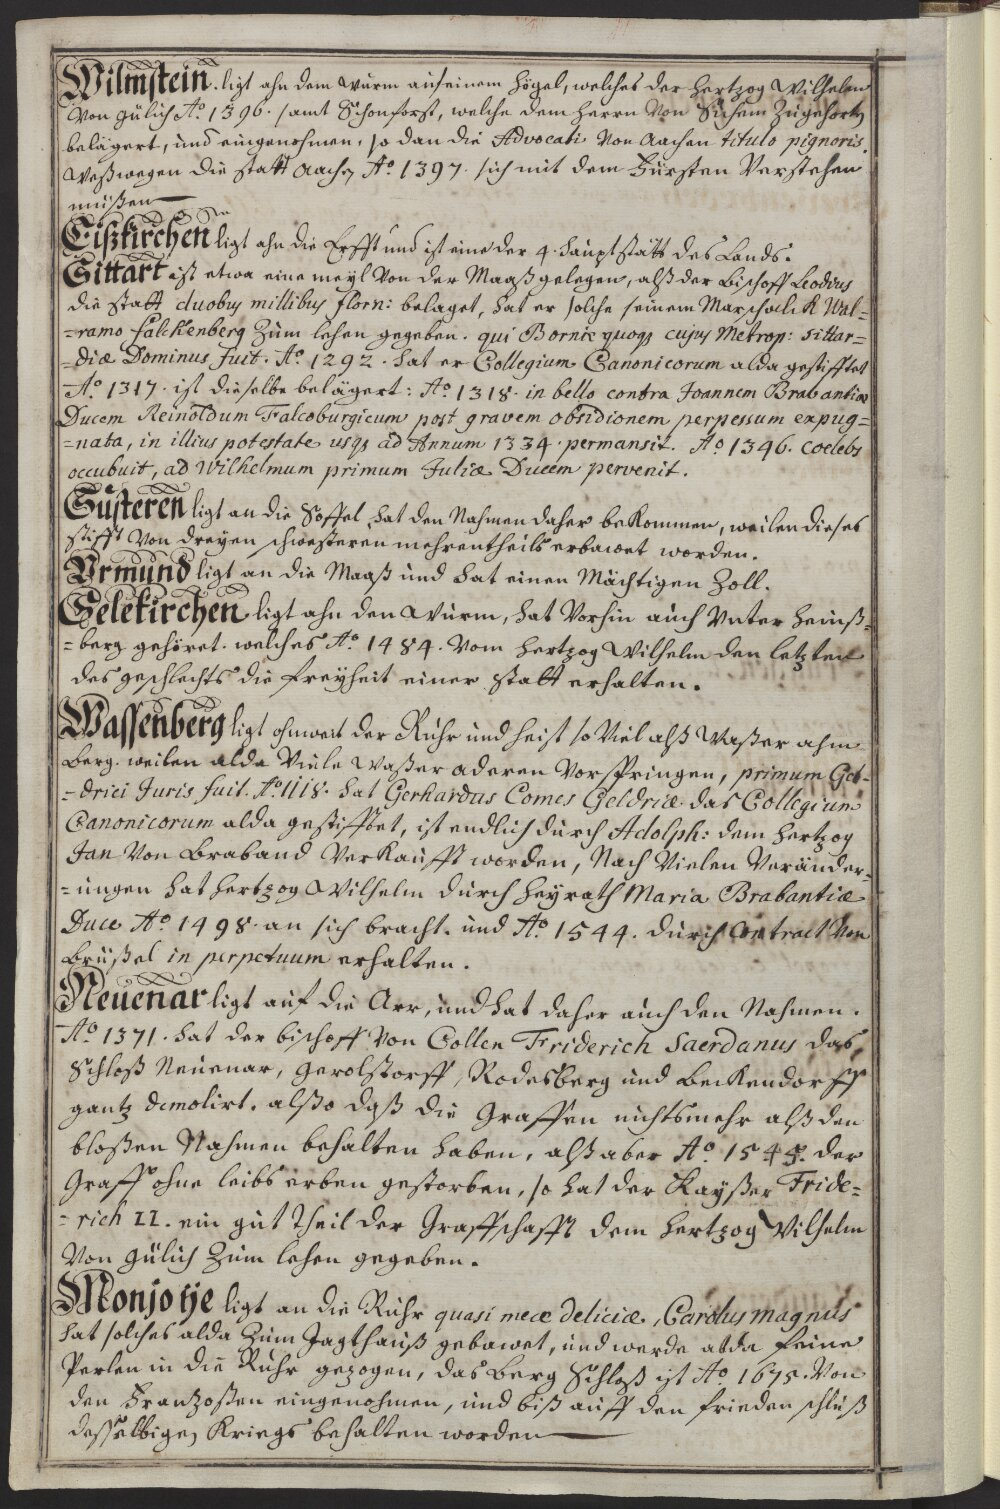 Wilmstein. ligt ahn dem Wurm auf einem Högel, welches der Hertzog Wilhelm
Von Gülich Aō. 1396. samt Schonforst, welche dem Herrn Von Sichem Zugehort,
belägert, und eingenohmen, so dan die Advocati Von Aachen titulo pignoris.
Weßwegen die statt Aachen Aō 1397. sich mit dem Fürsten Verstehen
müßen
Eißkirchen ligt ahn die Erfft und ist eine der 4. Haupt stätt des Lands.
Sittart ist etwa eine meyl Von der Maaß gelegen, alß der Bischoff Leodius
die statt duobus millibus floren: belaget, hat er solche seinem Marschalck Wal=
=ramo falckenberg Zum lehen gegeben. qui Bornæ quoq3 cujus Metrop: sittar=
=diæ Dominus fuit. Aō. 1292. hat er Collegium Canonicorum alda gestifftet
Aō. 1317. ist dieselbe belägert: Aō 1318. in bello contra Joannem Brabantiæ
Ducem Reinoldum Falcoburgicum post gravem obsidionem perpessum expug=
=nata, in illius potestate usq3 ad Annum 1334. permansit. Aō 1346. coelebs
occubuit, ad Wilhelmum primum Juliæ Ducem pervenit.
Süsteren ligt an die Soffel, hat den Nahmen daher bekommen, weilen dieses
stifft Von dreyen schwesteren mehrentheils erbawet worden.
Vrmund ligt an die Maaß und hat einen Mächtigen Zoll.
Gelekirchen ligt ahn den Wurm, hat Vorhin auch Vnter Heinß=
=berg gehöret. welches Aō. 1484. Vom Hertzog Wilhelm den letzten
des geschlechts die freyheit einer statt erhalten.
Wassenberg ligt ohnweit der Ruhr und heist so Viel alß Waßer ahm
Berg. weilen alda Viele Waßer aderen Vorspringen, primum Gel=
=drici Juris fuit. Aō. 1118. hat Gerhardus Comes Geldriæ das Collegium
Canonicorum alda gestifftet, ist endlich durch Adolph: dem Hertzog
Jan Von Braband Verkaufft worden, Nach Vielen Veränder=
=ungen hat Hertzog Wilhelm durch Heyrath Maria Brabantiæ
Duce Aō 1498. an sich bracht. und Aō. 1544. durch Contract Von
Brüßel in perpetuum erhalten.
Neuenar ligt auf die Arr, und hat daher auch den Nahmen.
Aō 1371. hat der bischoff Von Cöllen Friderich Saerdanus das
Schloß Neuenar, Gerolstorff, Rodesberg und Beckendorff
gantz demolirt. alßo daß die Graffen nichts mehr alß den
bloßen Nahmen behalten haben, alß aber Aō. 1545. der
Graff ohne leibs erben gestorben, so hat der Kayßer Fride=
=rich II. ein gut Theil der Graffschafft dem Hertzog Wilhelm
Von Gülich Zum lehen gegeben.
Monjotje ligt an die Ruhr quasi meæ deliciæ, Carolus magnus
hat solches alda Zum Jagthauß gebawet, und werde alda feine
Perlen in die Ruhr gezogen, das Berg Schloß ist Aō. 1675. Von
den Frantzoßen eingenohmen, und biß auff den frieden schluß
desselbigen Kriegs behalten worden